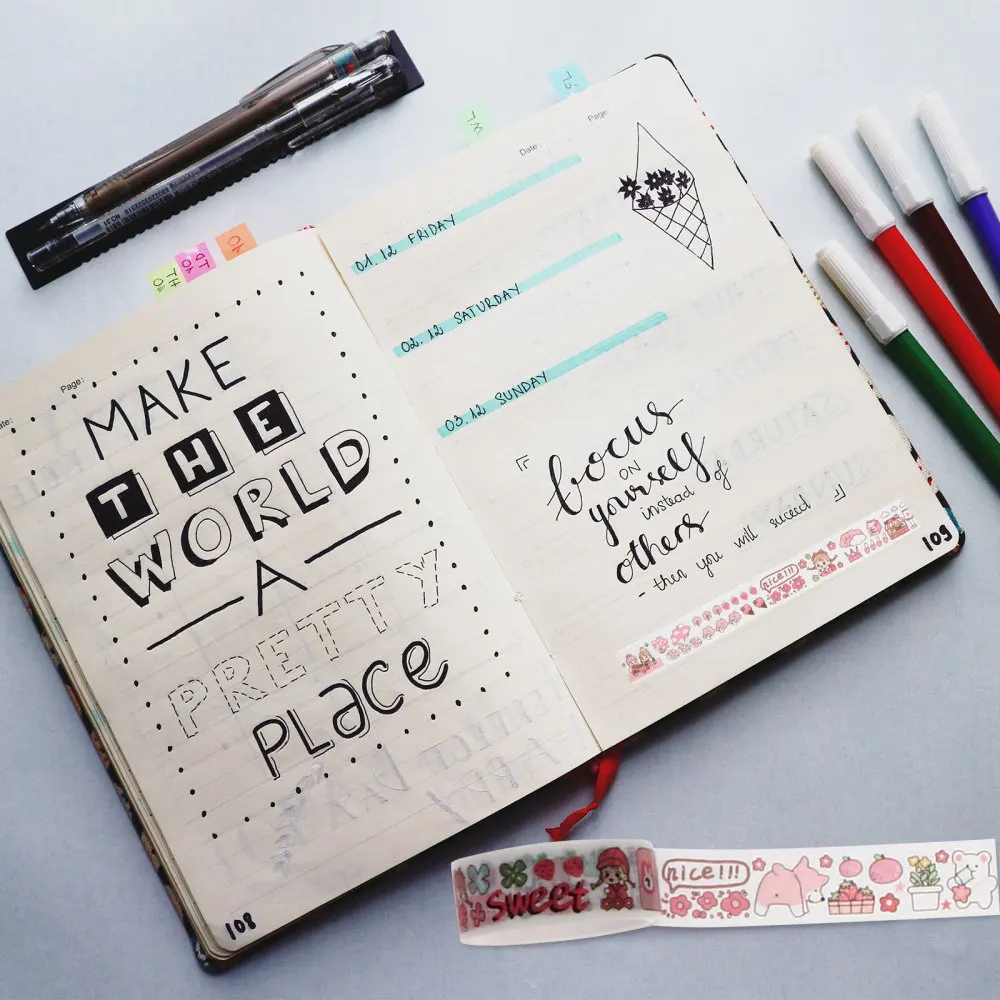 Page:
MAKE
THE
WORLD
A
PRETTY
PLace
108
Date:
Page:
01.12 FRIDAY
02.12 SATURDAY
03.12 SUNDAY
focus
ON
yourself
instead of
others
- then you will succeed
nice!!!
109
sweet
nice!!!